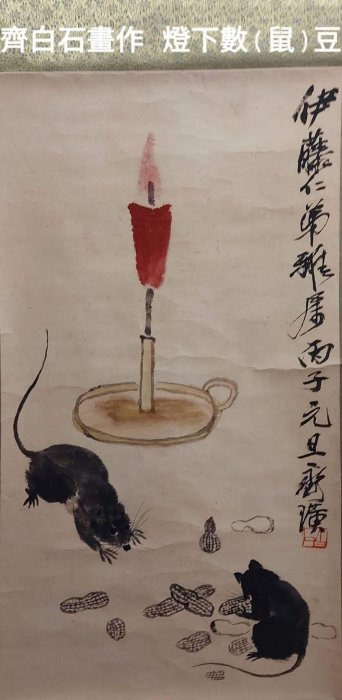 齊白石畫作 燈下數(鼠)豆
伊藤仁弟雅屬丙子元旦齊璜